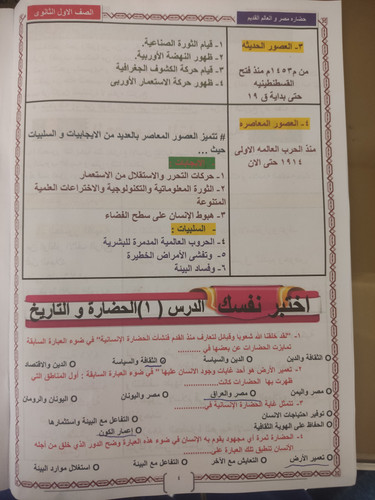 حضارة مصر و العالم القديم
الصف الأول الثانوى
٣- العصور الحديثه
من م١٤٥٣م منذ فتح
القسطنطينيه
حتى بداية ق ١٩
١- قيام الثورة الصناعية.
٢- ظهور النهضة الأوربية.
٣- قيام حركة الكشوف الجغرافية
٤- ظهور حركة الاستعمار الأوربى
٤- العصور المعاصره
منذ الحرب العالمه الاولى
١٩١٤ حتى الان
# تتميز العصور المعاصر بالعديد من الايجابيات و السلبيات
حيث ...
الإيجابيات
١- حركات التحرر والاستقلال من الاستعمار
٢- الثورة المعلوماتية والتكنولوجية والاختراعات العلمية
المتنوعة
٣- هبوط الإنسان على سطح الفضاء
- السلبيات :
٤- الحروب العالمية المدمرة للبشرية
٥- وتفشى الأمراض الخطيرة
٦- وفساد البيئة
اختبر نفسك الدرس (١) الحضارة و التاريخ
١- "لقد خلقنا الله شعوبا وقبائل لتعارف منذ القدم فنشأت الحضارة الإنسانية" في ضوء العبارة السابقة
تمايزت الحضارات عن بعضها في ..........
الثقافة والدين
الدين والسياسة
الثقافة والسياسة
الدين والاقتصاد
٢- تعمير الأرض هو أحد غايات وجود الإنسان عليها " في ضوء العبارة السابقة : أول المناطق التي
ظهرت بها الحضارات كانت..........
مصر واليمن
مصر والعراق
مصر واليونان
اليونان والرومان
٣- تتمثل غاية الحضارة الإنسانية في ..........
توفير احتياجات الانسان
التفاعل مع البيئة واستثمارها
الحفاظ على الهوية الثقافية
إعمار الكون
٤- الحضارة ثمرة أي مجهود يقوم به الإنسان في ضوء هذه العبارة وضح الدور الذي خلق من أجله
الإنسان تنطبق تلك العبارة على ..........
تعمير الأرض
التعايش مع الآخر
التفاعل مع البيئة
استغلال موارد البيئة